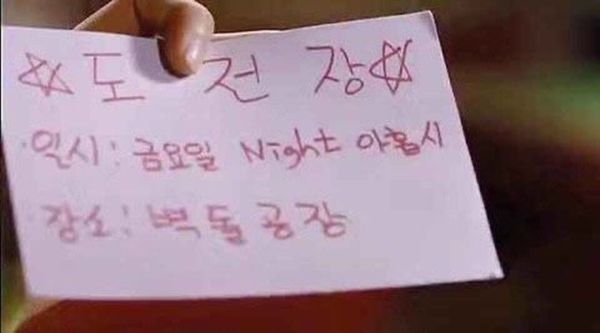 ☆도전장☆
·일시: 금요일 Night 아홉시
·장소: 벽돌공장